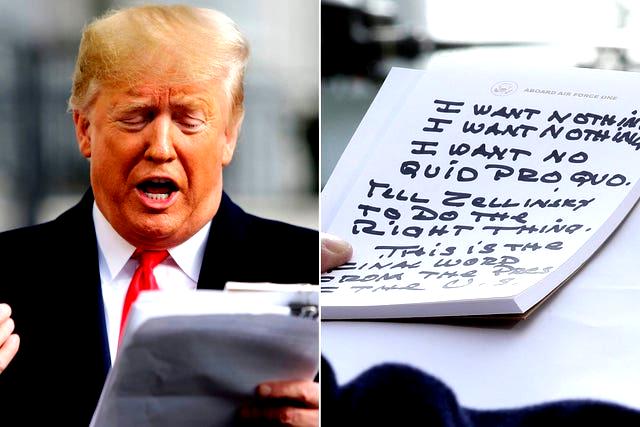 ABOARD AIR FORCE ONE
I WANT NOTHIN
I WANT NOTHING
I WANT NO
QUID PRO QUO.
TELL ZELLINSKY
TO DO THE
RIGHT THING.
THIS IS THE
FINAL WORD
FROM THE PRES
THE U.S.